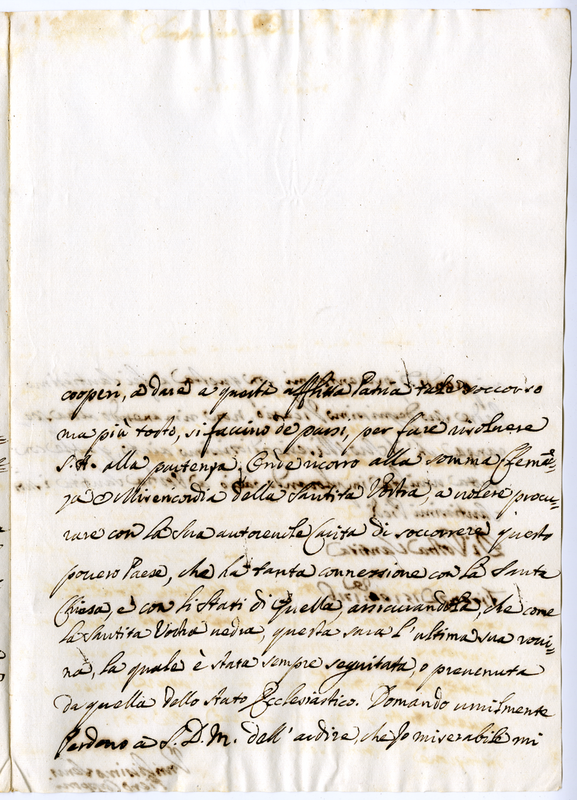 cooperi, a dare a questa afflitta Patria tale soccorso
ma più tosto, si faccino de passi, per fare risolvere
S. A. alla partenza. Onde ricorro alla somma Clemen=
za e Misericordia della Santità Vostra, a volere procu=
rare con la Sua autorevole Carità di soccorrere questo
povero Paese, che ha tanta connessione con la Santa
Chiesa e con li Stati di Quella assicurandola, che come
la Santità Vostra vedrà, questa sarà l'ultima sua rovi=
na, la quale è stata sempre seguitata, o prevenuta
da quella dello Stato Ecclesiastico. Domando umilmente
Perdono a S. D. M. dell'ardire, che Io miserabile mi